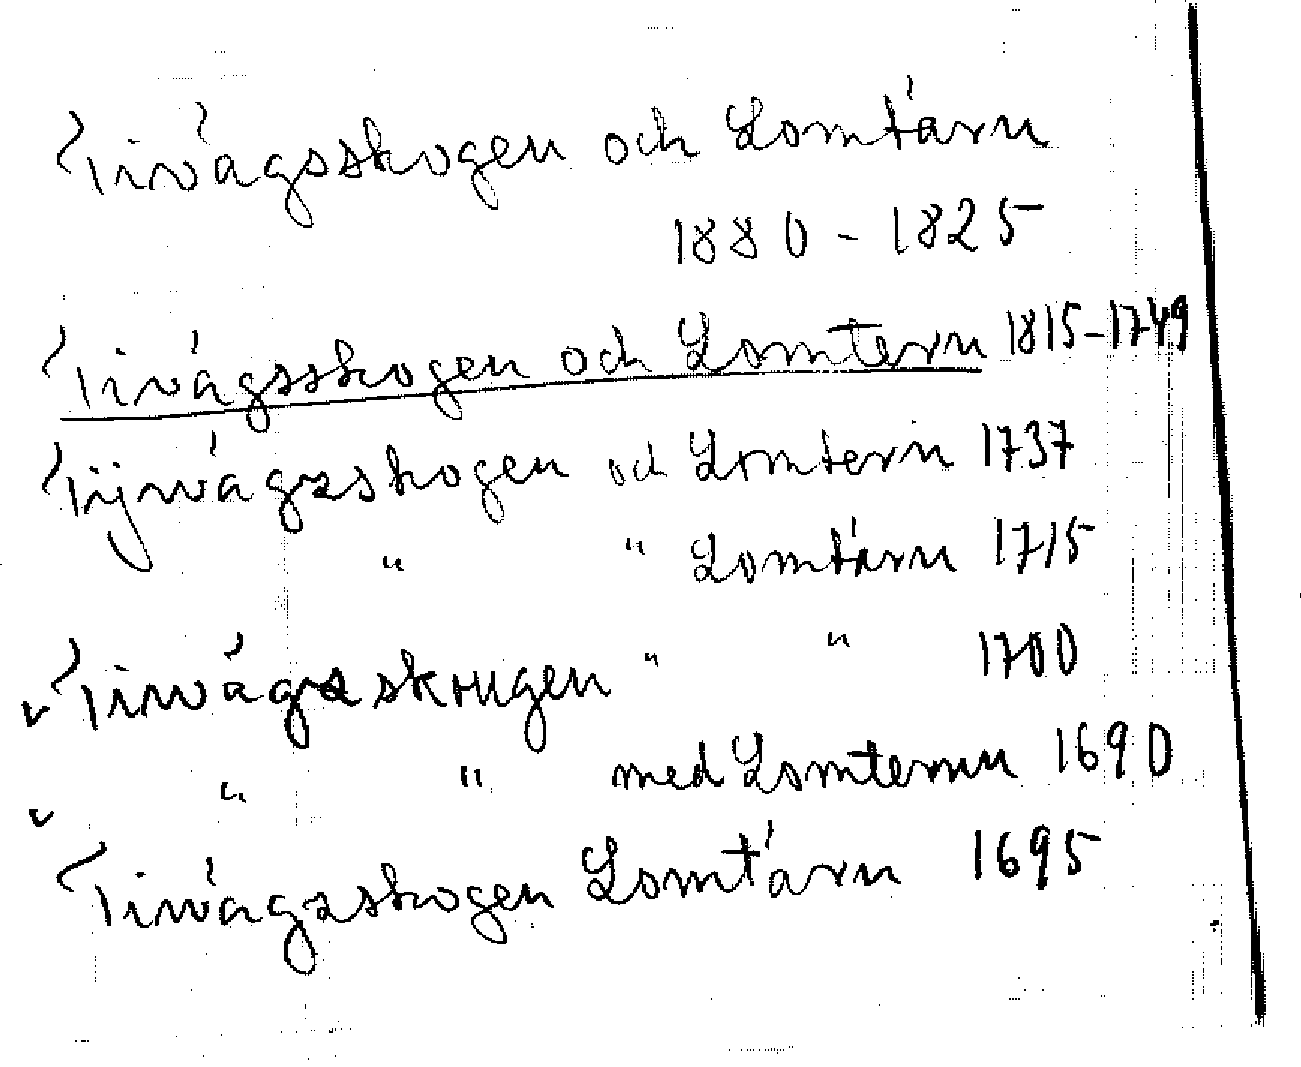 Tivågsskogen och Lomtärn
1880 - 1825
Tivågsskogen och Lomtern 1815-1749
Tijwågzskogen och Lomtern 1737
" " Lomtärn 1715
Tiwågzskougen " " 1700
" " med Lomternn 1690
Tiwågzskogen Lomtärn 1695